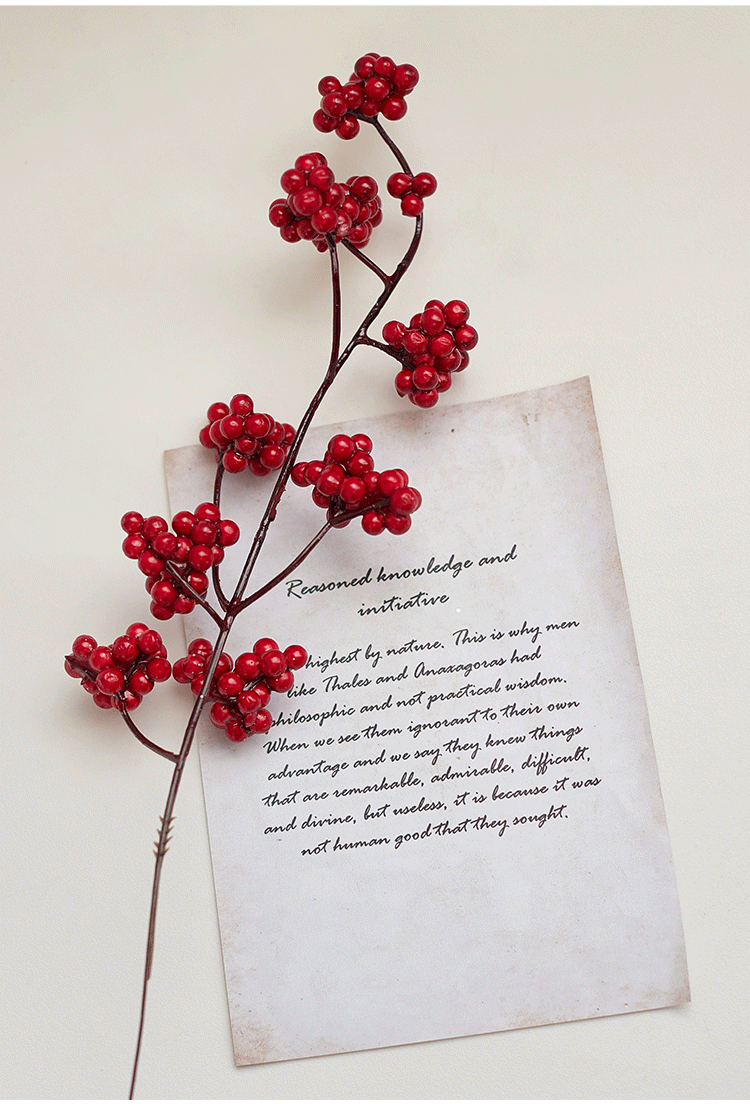 Reasoned knowledge and
initiative
highest by nature. This is why men
like Thales and Anaxagoras had
philosophic and not practical wisdom.
When we see them ignorant to their own
advantage and we say they knew things
that are remarkable, admirable, difficult,
and divine, but useless, it is because it was
not human good that they sought.